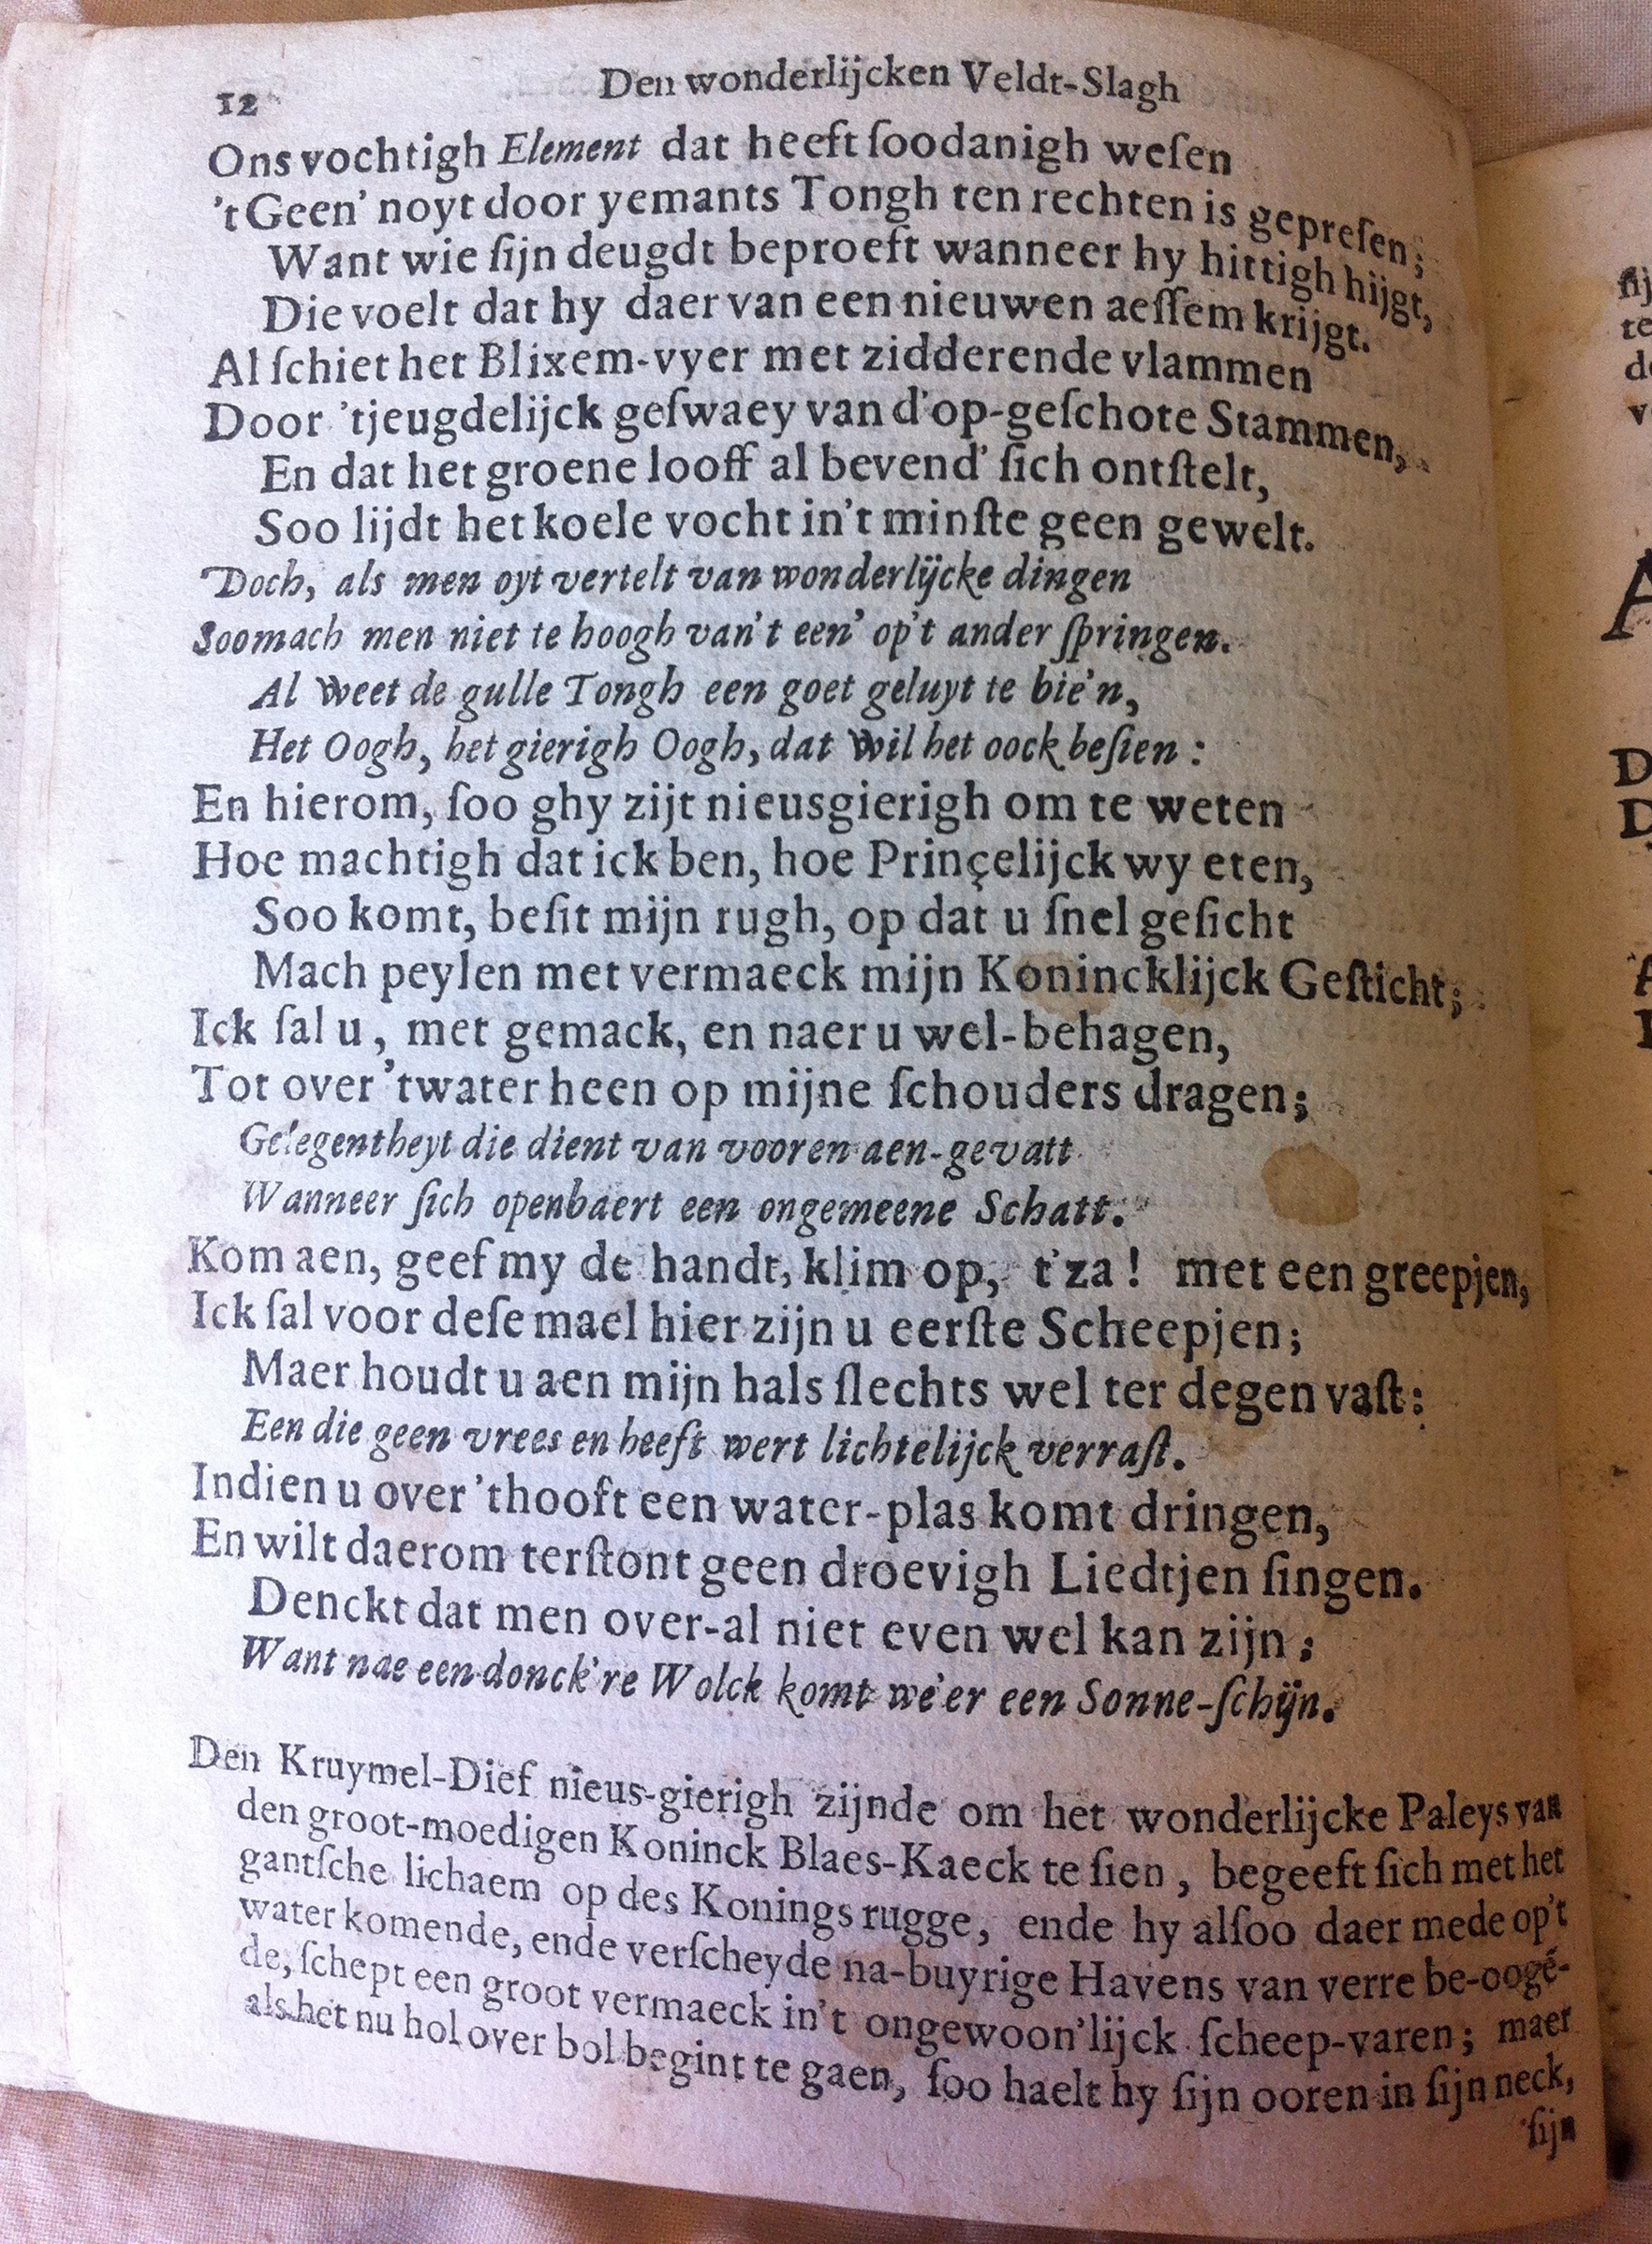 12 Den wonderlijcken Veldt-Slagh
Ons vochtigh Element dat heeft ſoodanigh weſen
't Geen' noyt door yemants Tongh ten rechten is gepreſen;
Want wie ſijn deugdt beproeft wanneer hy hittigh hijgt,
Die voelt dat hy daer van een nieuwen aeſſem krijgt.
Al ſchiet het Blixem-vyer met zidderende vlammen
Door 'tjeugdelijck geſwaey van d'op-geſchote Stammen,
En dat het groene looff al bevend' ſich ontſtelt,
Soo lijdt het koele vocht in't minſte geen gewelt.
Doch, als men oyt vertelt van wonderlijcke dingen
Soo mach men niet te hoogh van't een' op't ander ſpringen.
Al weet de gulle Tongh een goet geluyt te bie'n,
Het Oogh, het gierigh Oogh, dat wil het oock beſien :
En hierom, ſoo ghy zijt nieusgierigh om te weten
Hoe machtigh dat ick ben, hoe Prinçelijck wy eten,
Soo komt, beſit mijn rugh, op dat u ſnel geſicht
Mach peylen met vermaeck mijn Konincklijck Geſticht;
Ick ſal u, met gemack, en naer u wel-behagen,
Tot over 'twater heen op mijne ſchouders dragen;
Gelegentheyt die dient van vooren aen-gevatt
Wanneer ſich openbaert een ongemeene Schatt.
Kom aen, geef my de handt, klim op, t'za! met een greepjen,
Ick ſal voor deſe mael hier zijn u eerſte Scheepjen;
Maer houdt u aen mijn hals ſlechts wel ter degen vaſt:
Een die geen vrees en heeft wert lichtelijck verraſt.
Indien u over 'thooft een water-plas komt dringen,
En wilt daerom terſtont geen droevigh Liedtjen ſingen.
Denckt dat men over-al niet even wel kan zijn;
Want nae een donck're Wolck komt we'er een Sonne-ſchijn.
Den Kruymel-Dief nieus-gierigh zijnde om het wonderlijcke Paleys van
den groot-moedigen Koninck Blaes-Kaeck te ſien, begeeft ſich met het
gantſche lichaem op des Konings rugge, ende hy alſoo daer mede op't
water komende, ende verſcheyde na-buyrige Havens van verre be-oogē-
de, ſchept een groot vermaeck in't ongewoon'lijck ſcheep-varen; maer
als het nu hol over bol begint te gaen, ſoo haelt hy ſijn ooren in ſijn neck,
ſijn